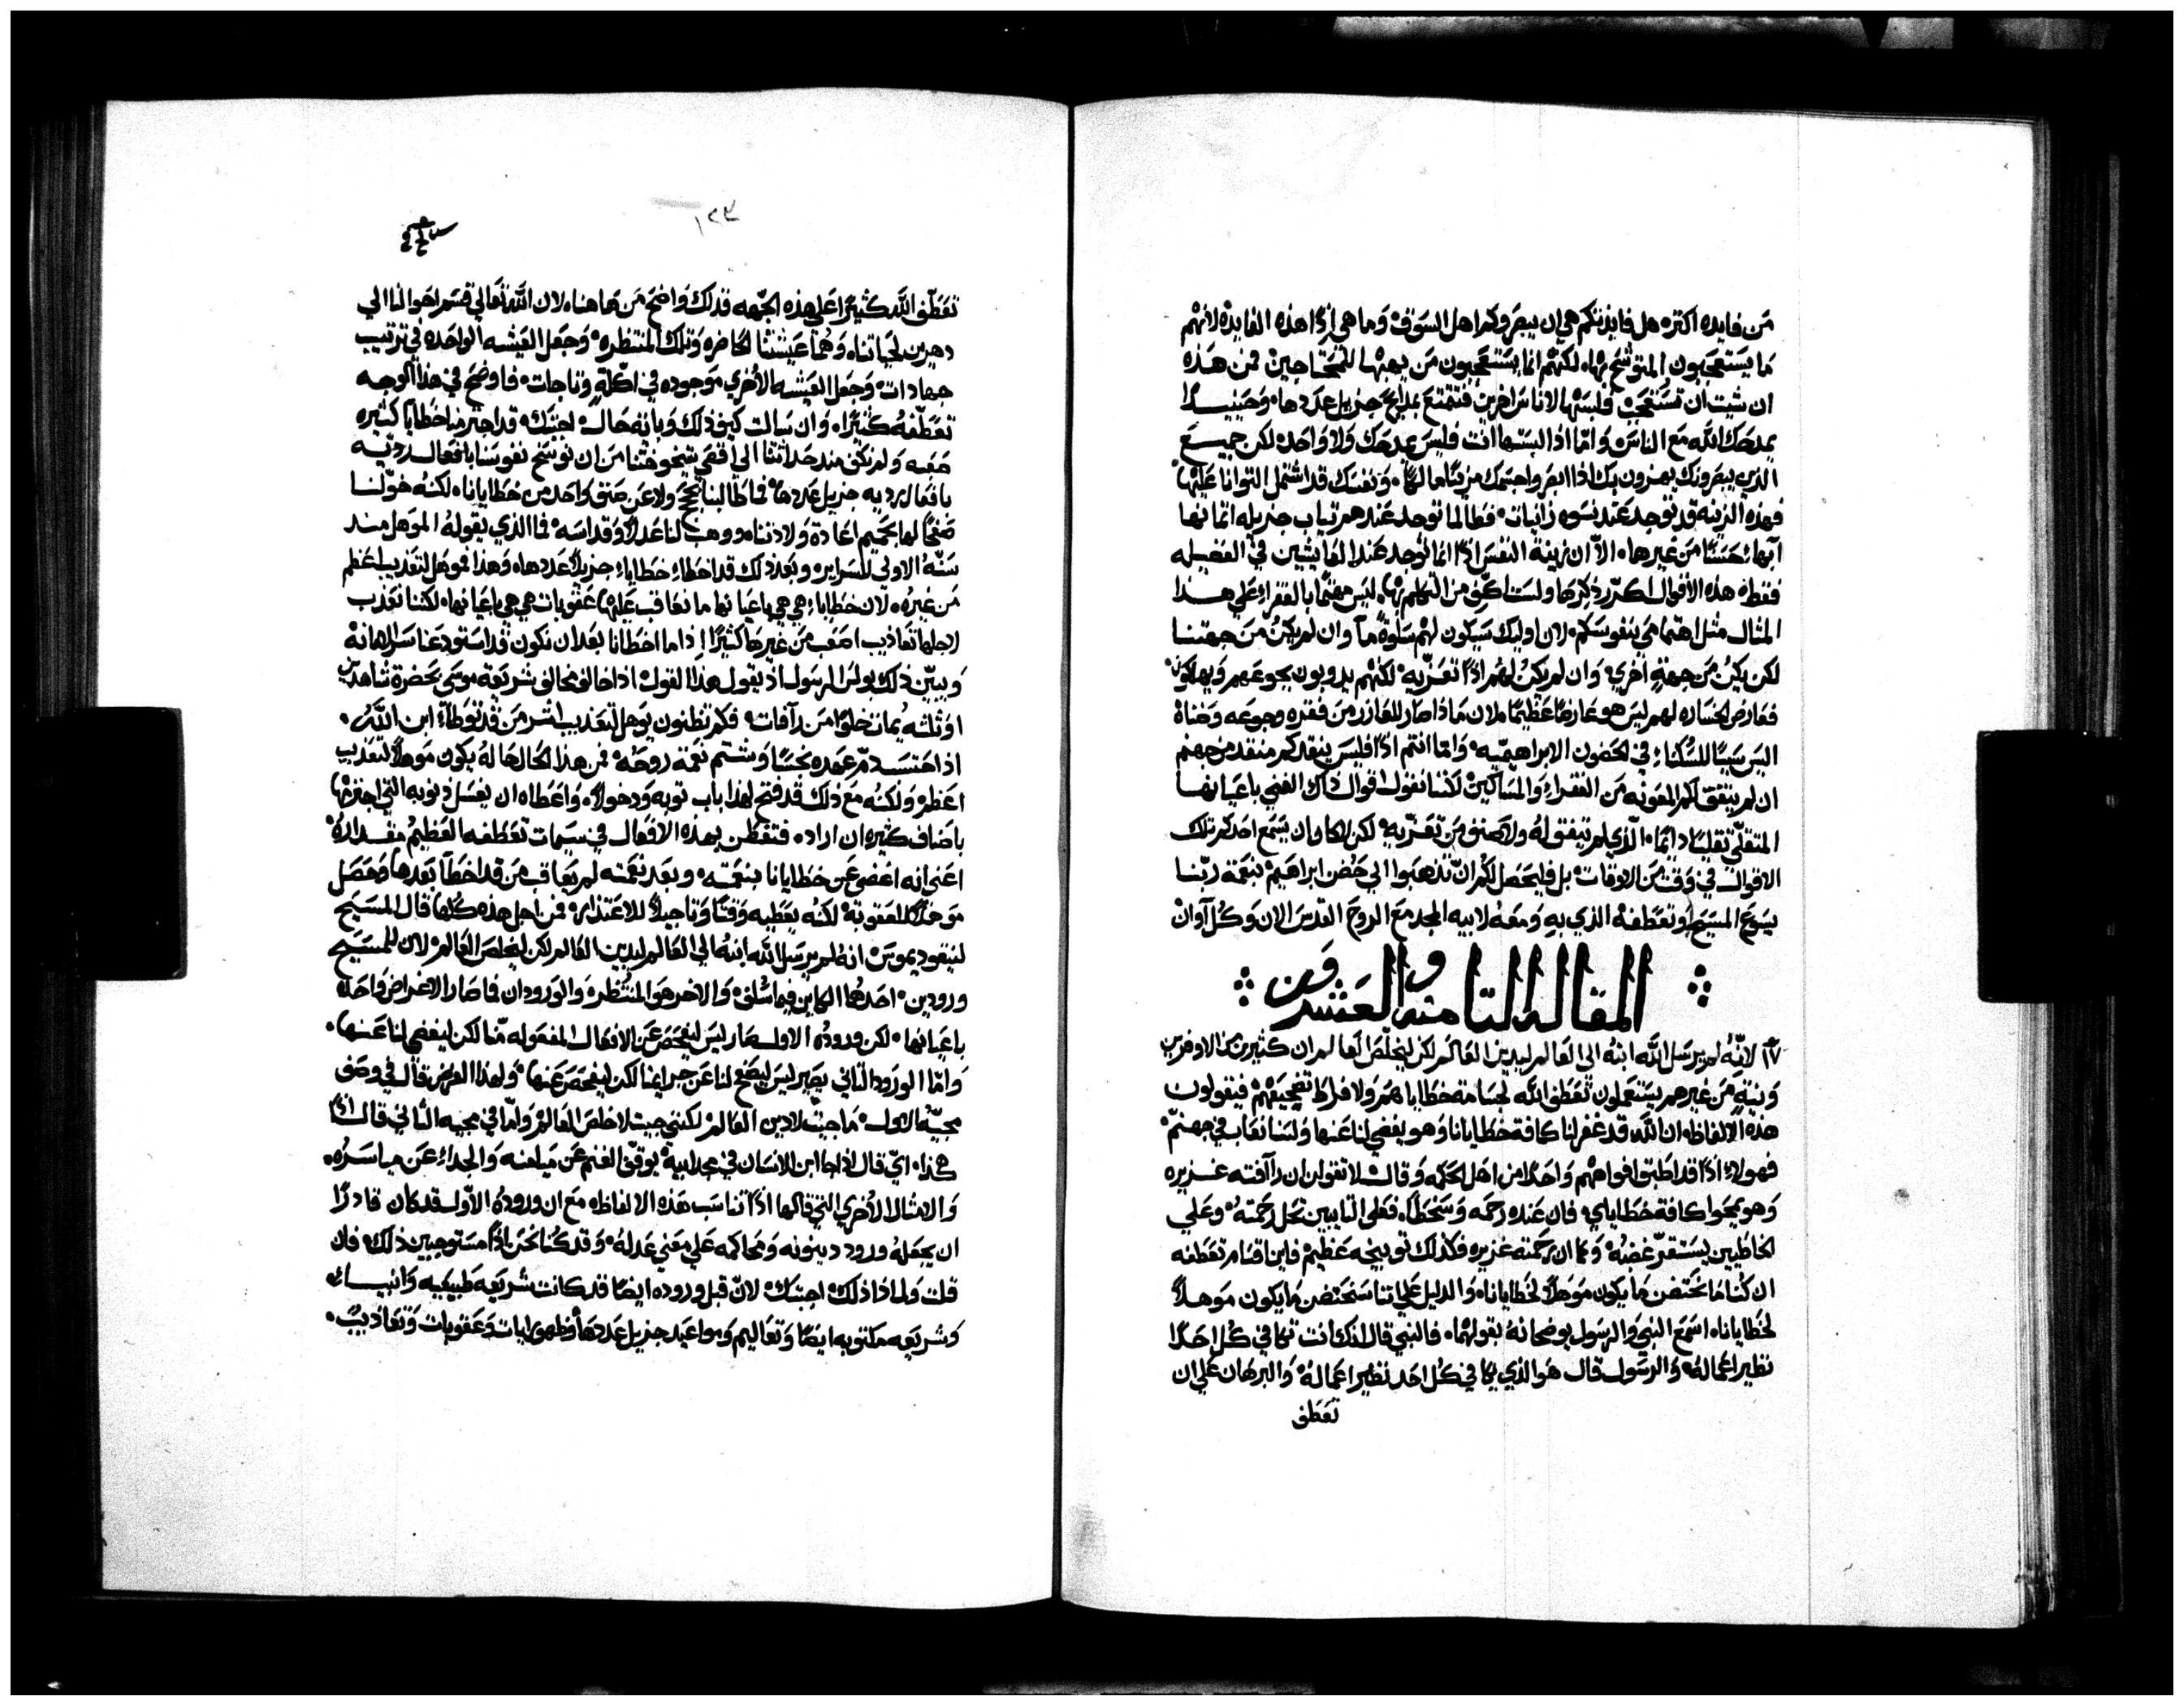 من فايده اكتره هل فايدتكم هي ان يبصروكم اهل السوق وما هي اذا هذه الفايده لانهم
ما يستعجبون المتوشح بها لكنهم انما يستعجبون من يهبها للمحتاجين فمن هذه
ان شيت ان تستعجب فلبسها لاناس اخرين فتتمتع بمدايح جزيل عددها وحينيذ
يمدحك الله مع الناس واما اذا لبستها انت فليس يمدحك ولا واحد لكن جميع
الذين يبصرونك يهزون بك اذا ابصروا جسمك مزينا ونفسك قد اشتمل التوانا عليها
فهذه الزينه قد توجد عند نسوه زانيات فطالما توجد عندهم تياب جزيله اتمانها
ابها حسنا من غيرها الا ان زينة النفس اذا انما توجد عند العايشين في الفضيله
فقط هذه الاقوال اكرر ذكرها ولست اكف من التكلم بها ليس مهتما بالفقراء علي هذا
المثال مثل اهتمامي بنفوسكم لان اوليك سيكون لهم سلوة ما وان لم يكن من جهتنا
لكن يكن من جهة اخري وان لم يكن لهم اذا تعزيه لكنهم يدوبون بجوعهم ويهلكون
فعارض الخساره لهم ليس هو عارضا عظيما لان ماذا صار للعازر من فقره وجوعه وضناه
اليس سببا للسكناء في الحضون الابراهيميه واما انتم اذا فليس ينقدكم منقد من جهنم
ان لم يتفق لكم المعونه من الفقراء والمساكين لكننا نقول اقوال ذاك الغني باعيانها
المتقلي تقليا دايما الذي لم يتفق له ولا صنف من تعزيه لكن لا كان ان يسمع احدكم تلك
الاقوال في وقت من الاوقات بل فليحصل لكم ان تذهبوا الي حضن ابراهيم بنعمة ربنا
يسوع المسيح وتعطفه الذي به ومعه لابيه المجد مع الروح القدس الان وكل اوان
المقاله التامنه والعشرون
١٧ لانه لم يرسل الله ابنه الي العالم ليدين العالم لكن ليخلص العالم ان كثيرين من الاوفرين
ونية من غيرهم يستعملون تعطف الله لجسامة خطاياهم ولافراط تضجيعهم فيقولون
هذه الالفاظ ان الله قد غفر لنا كافة خطايانا وهو يغضي لنا عنها ولسنا نعاب في جهنم
فهولاء اذا قد اطبق افواههم واحدا من اهل الحكمه وقال لا تقولن ان رآفته غزيره
وهو يمحوا كافة خطاياي فان عنده رحمه وسخطا فعلي التايبين تحل رحمته وعلي
الخاطيين يستقر غضبه وكما ان رحمته غزيره فكذلك توبيخه عظيم فاين اقنام تعطفه
ان كنا ما نحتضن ما يكون موهلا لخطايانا والدليل علي اننا سنحتضن ما يكون موهلا
لخطايانا اسمع النبي والرسول يوضحانه بقولهما فالنبي قال لانك انت تكافي كل احدا
نظير اعماله والرسول قال هو الذي يكافي كل احد نظير اعماله والبرهان علي ان
تعطف
١٢٣
تعطف الله كثيرا علي هذه الجهه فذلك واضح من هاهنا لان الله تعالي قسم احوالنا الي
دهرين لحياتنا وهما عيشتنا الحاضره وتلك المنتظره وجعل العيشه الواحده في ترتيب
جهادات وجعل العيشه الاخري موجوده في اكلة وتاجات فاوضح في هذا الوجه
تعطفه كثيرا وان سالت كيف ذلك وباية حال اجبتك قد اجترمنا خطايا كثيره
صعبه ولم نكف منذ حداثتنا الي اقصي شيخوختنا من ان نوسخ نفوسنا بافعال رديه
بافعال رديه جزيل عددها فما طالبنا بحجج ولا عن صنف واحد من خطايانا لكنه خولنا
صفحا لها بحميم اعادة ولادتنا ووهب لنا عدلا وقداسه فما الذي يقوله الموهل منذ
سنه الاولي للسراير وبعد ذلك قد اخطاء خطاياء جزيلا عددها وهذا فموهل لتعذيب اعظم
من غيره لان خطاياء هي هي باعيانها ما نعاقب عليها عقوبات هي هي باعيانها لكننا نعذب
لاجلها تعاذيب اصعب من غيرها كثيرا اذا ما اخطانا بعد ان نكون قد استودعنا سرايرها
ويبين ذلك بولس الرسول اذ يقول هذا القول اذا خالف مخالف شريعة موسي بحضرة شاهدين
او ثلثه يمات خلوا من رآفات فكم تظنون يوهل لتعذيب اشر من قد توطا ابن الله
اذ احتسب دم عهده نجسا وشتم نعمة روحه فمن هذا الحال حاله يكون موهلا لتعذيب
اعظم ولكنه مع ذلك قد فتح لهذا باب توبه ودخولا واعطاه ان يغسل ذنوبه التي اجترمها
باصناف كثيره ان اراد فتفطن بهذه الاقوال في سيمات تعطفه العظيم مقداره
اعني انه اغضي عن خطايانا بنعمته وبعد نعمته لم يعاقب من قد اخطا بعدها وحصل
موهلا للعقوبة لكنه يعطيه وقتا وتاجيلا للاعتذار فمن اجل هذه كلها قال المسيح
لنيقوديموس انه لم يرسل الله ابنه الي العالم ليدين العالم لكن ليخلص العالم لان للمسيح
ورودين احدهما الكاين فيما سلف والاخر هو المنتظر والورودان فما صارا لاغراض واحده
باعيانها لكن وروده الاول صار ليس ليفحص عن الافعال المفعوله منا لكن ليغضي لنا عنها
واما الورود الثاني يصير ليس ليصفح لنا عن جرايمنا لكن ليفحص عنها ولهذا الغرض قال في وصف
مجيه الاول ما جيت لادين العالم لكنني جيت لاخلص العالم واما في مجيه الثاني قال اذا
هكذا اني قال اذا جا ابن الانسان في مجد ابيه يوقف الغنم عن ميامنه والجداء عن مياسره
والامثال الاخري التي قالها اذا تناسب هذه الالفاظ مع ان وروده الاول قد كان قادرا
ان يجعله ورود دينونه ومحاكمه علي معني عدله وقد كنا نحن اذا مستوجبين ذلك فان
قلت ولماذا ذلك اجبتك لان قبل وروده ايضا قد كانت شريعه طبيعيه وانبياء
وشريعه مكتوبه ايضا وتعاليم ومواعيد جزيل عددها وظهور ايات وعقوبات وتعاذيب